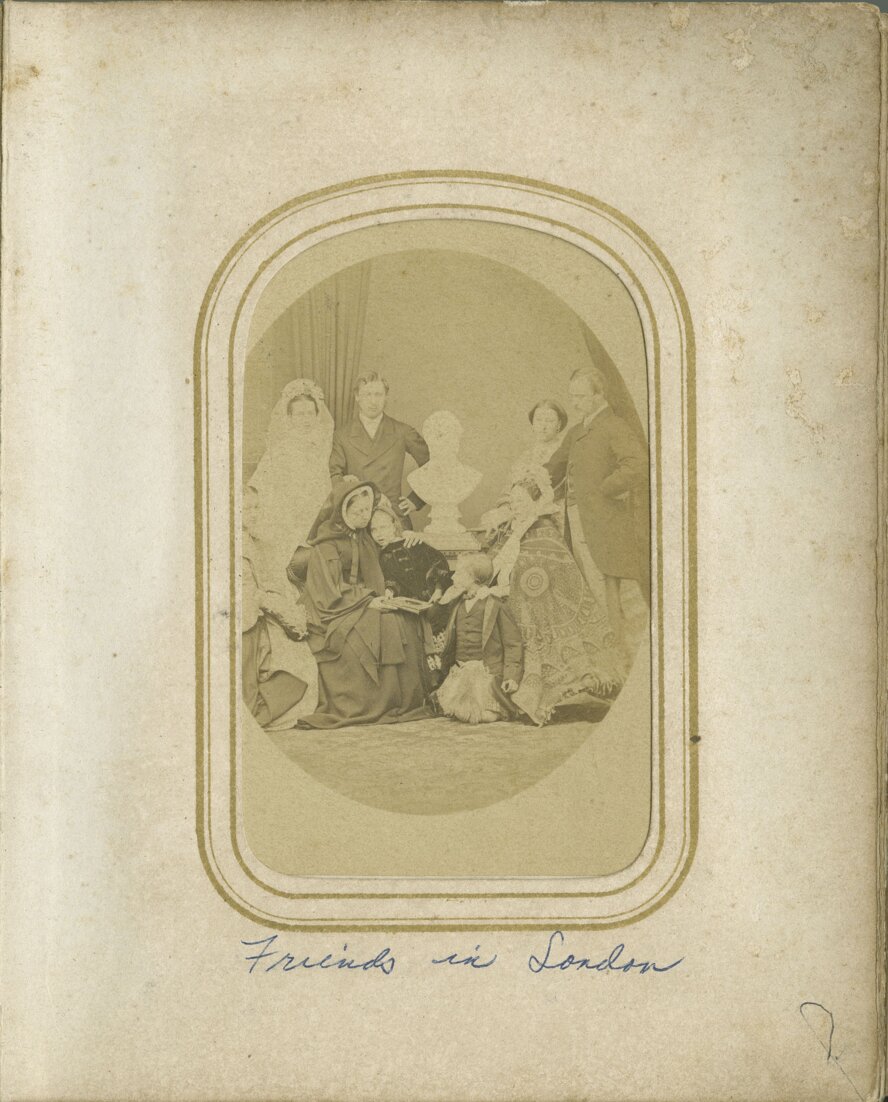 Friends in London